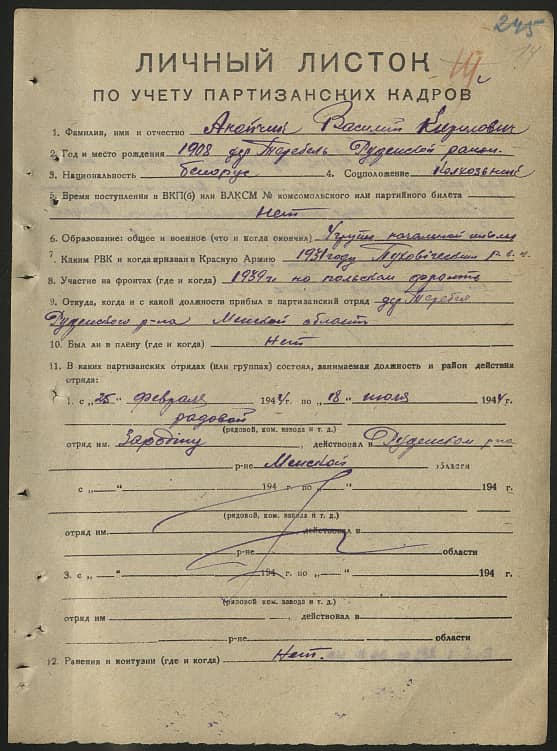 245
14
ЛИЧНЫЙ ЛИСТОК
ПО УЧЕТУ ПАРТИЗАНСКИХ КАДРОВ
1. Фамилия, имя и отчество Василий Кирилович
2. Год и место рождения 1908 дер Теребель Руденской район.
3. Национальность белорус 4. Соцположение Колхозьник
5. Время поступления в ВКП(б) или ВЛКСМ № комсомольского или партийного билета
Нет
6. Образование: общее и военное (что и когда окончил) 4 групы начальной школы
7. Каким РВК и когда призван в Красную Армию 1931 году Пуховическим р.в.к.
8. Участие на фронтах (где и когда) 1939 г. на польском фронте
9. Откуда, когда и с какой должности прибыл в партизанский отряд дер Теребел
Руденского р-на Менской област
10. Был ли в плену (где и когда) Нет
11. В каких партизанских отрядах (или группах) состоял, занимаемая должность и район действия
отряда:
1. с „25" февраля 1944 г. по „18" июля 1944 г.
радовой
(рядовой, ком. взвода и т. д.)
отряд им. , действовал в Руденском р-на
р-не Менской области
с „—" 194 г. по „—" 194 г.
(рядовой, ком. взвода и т. д.)
отряд им. действовал в
р-не области
3. с „—" 194 г. по „—" 194 г.
(рядовой, ком. взвода и т. д.)
отряд им. , действовал в
р-не области
12. Ранения и контузии (где и когда) Нет.